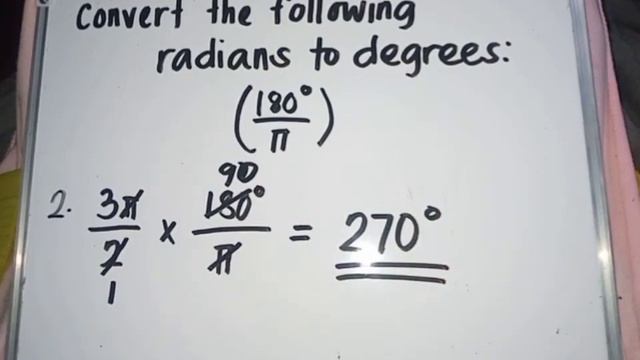 Convert the following
radians to degrees:
(180°/π)
2. 3π/2 × 180°/π = 270°
90
1